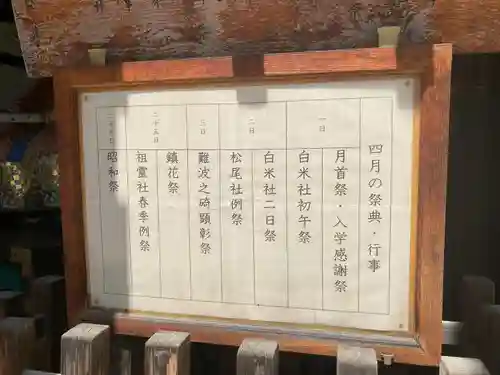 四月の祭典・行事
一日
月首祭・入学感謝祭
白米社初午祭
二日
白米社二日祭
松尾社例祭
三日
難波之碕顕彰祭
二十五日
鎮花祭
祖霊社春季例祭
二十九日
昭和祭